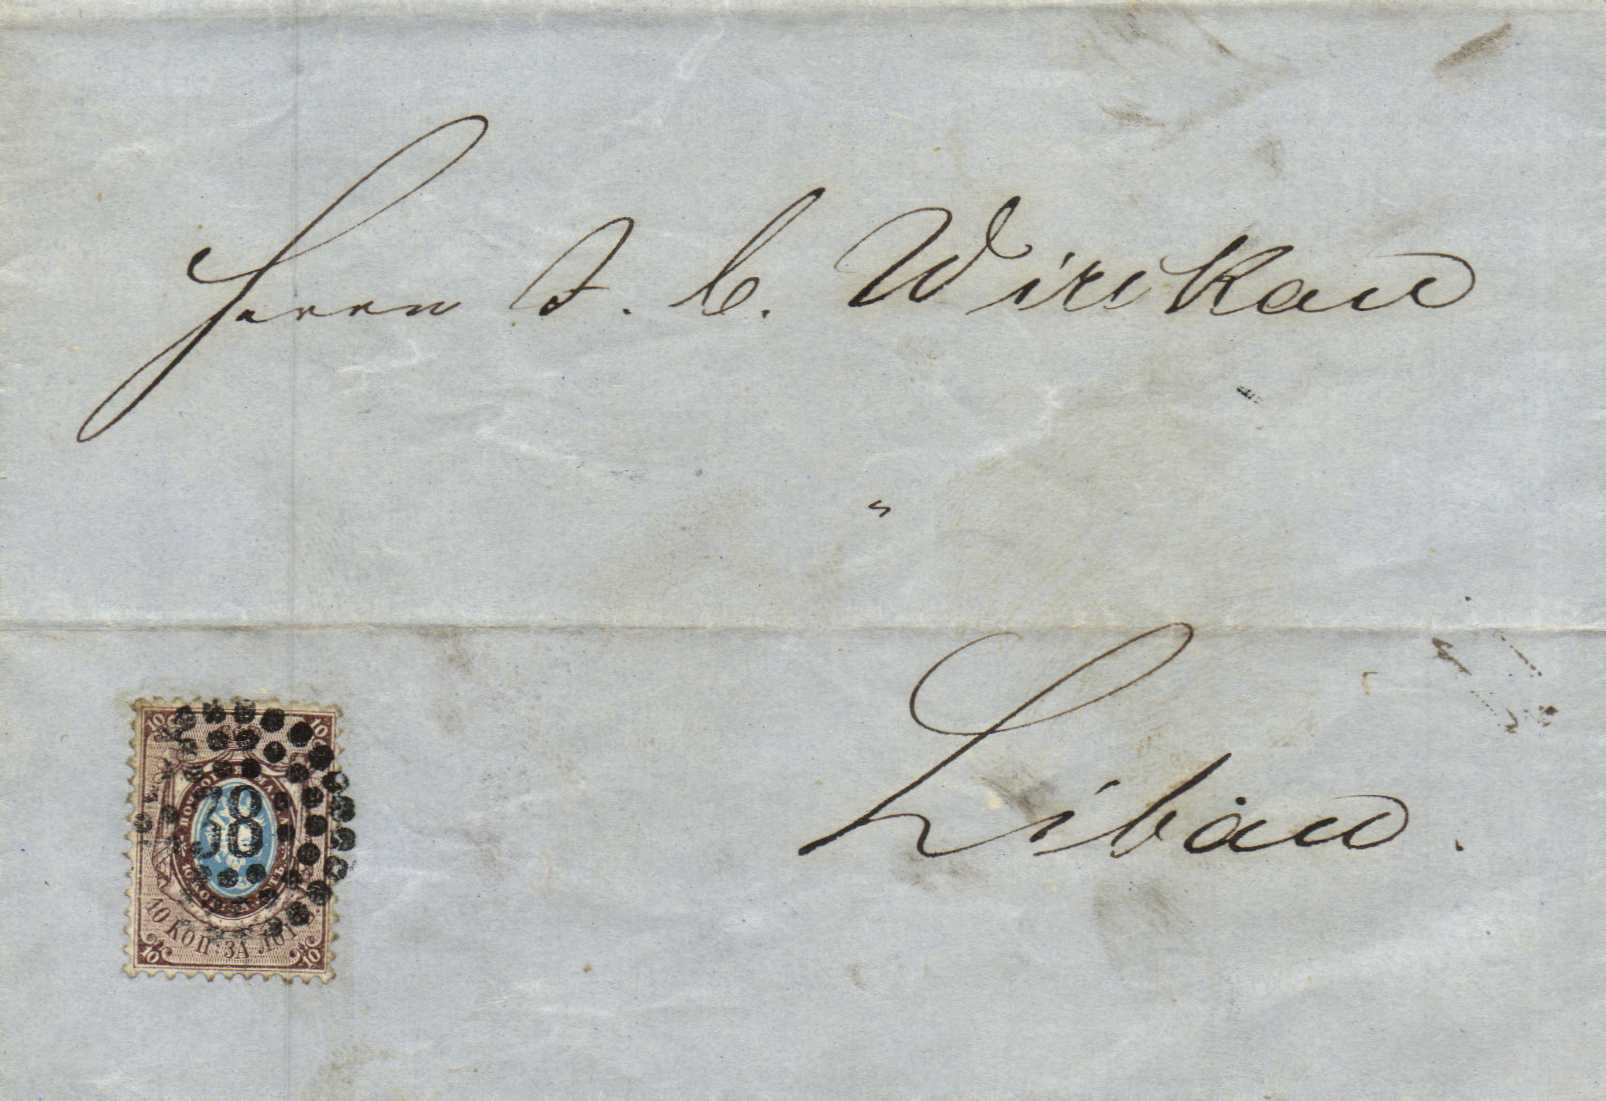 Herrn J. C. Wirckau
Libau.
10 10
38
10 КОП: ЗА ЛОТЪ
10 10